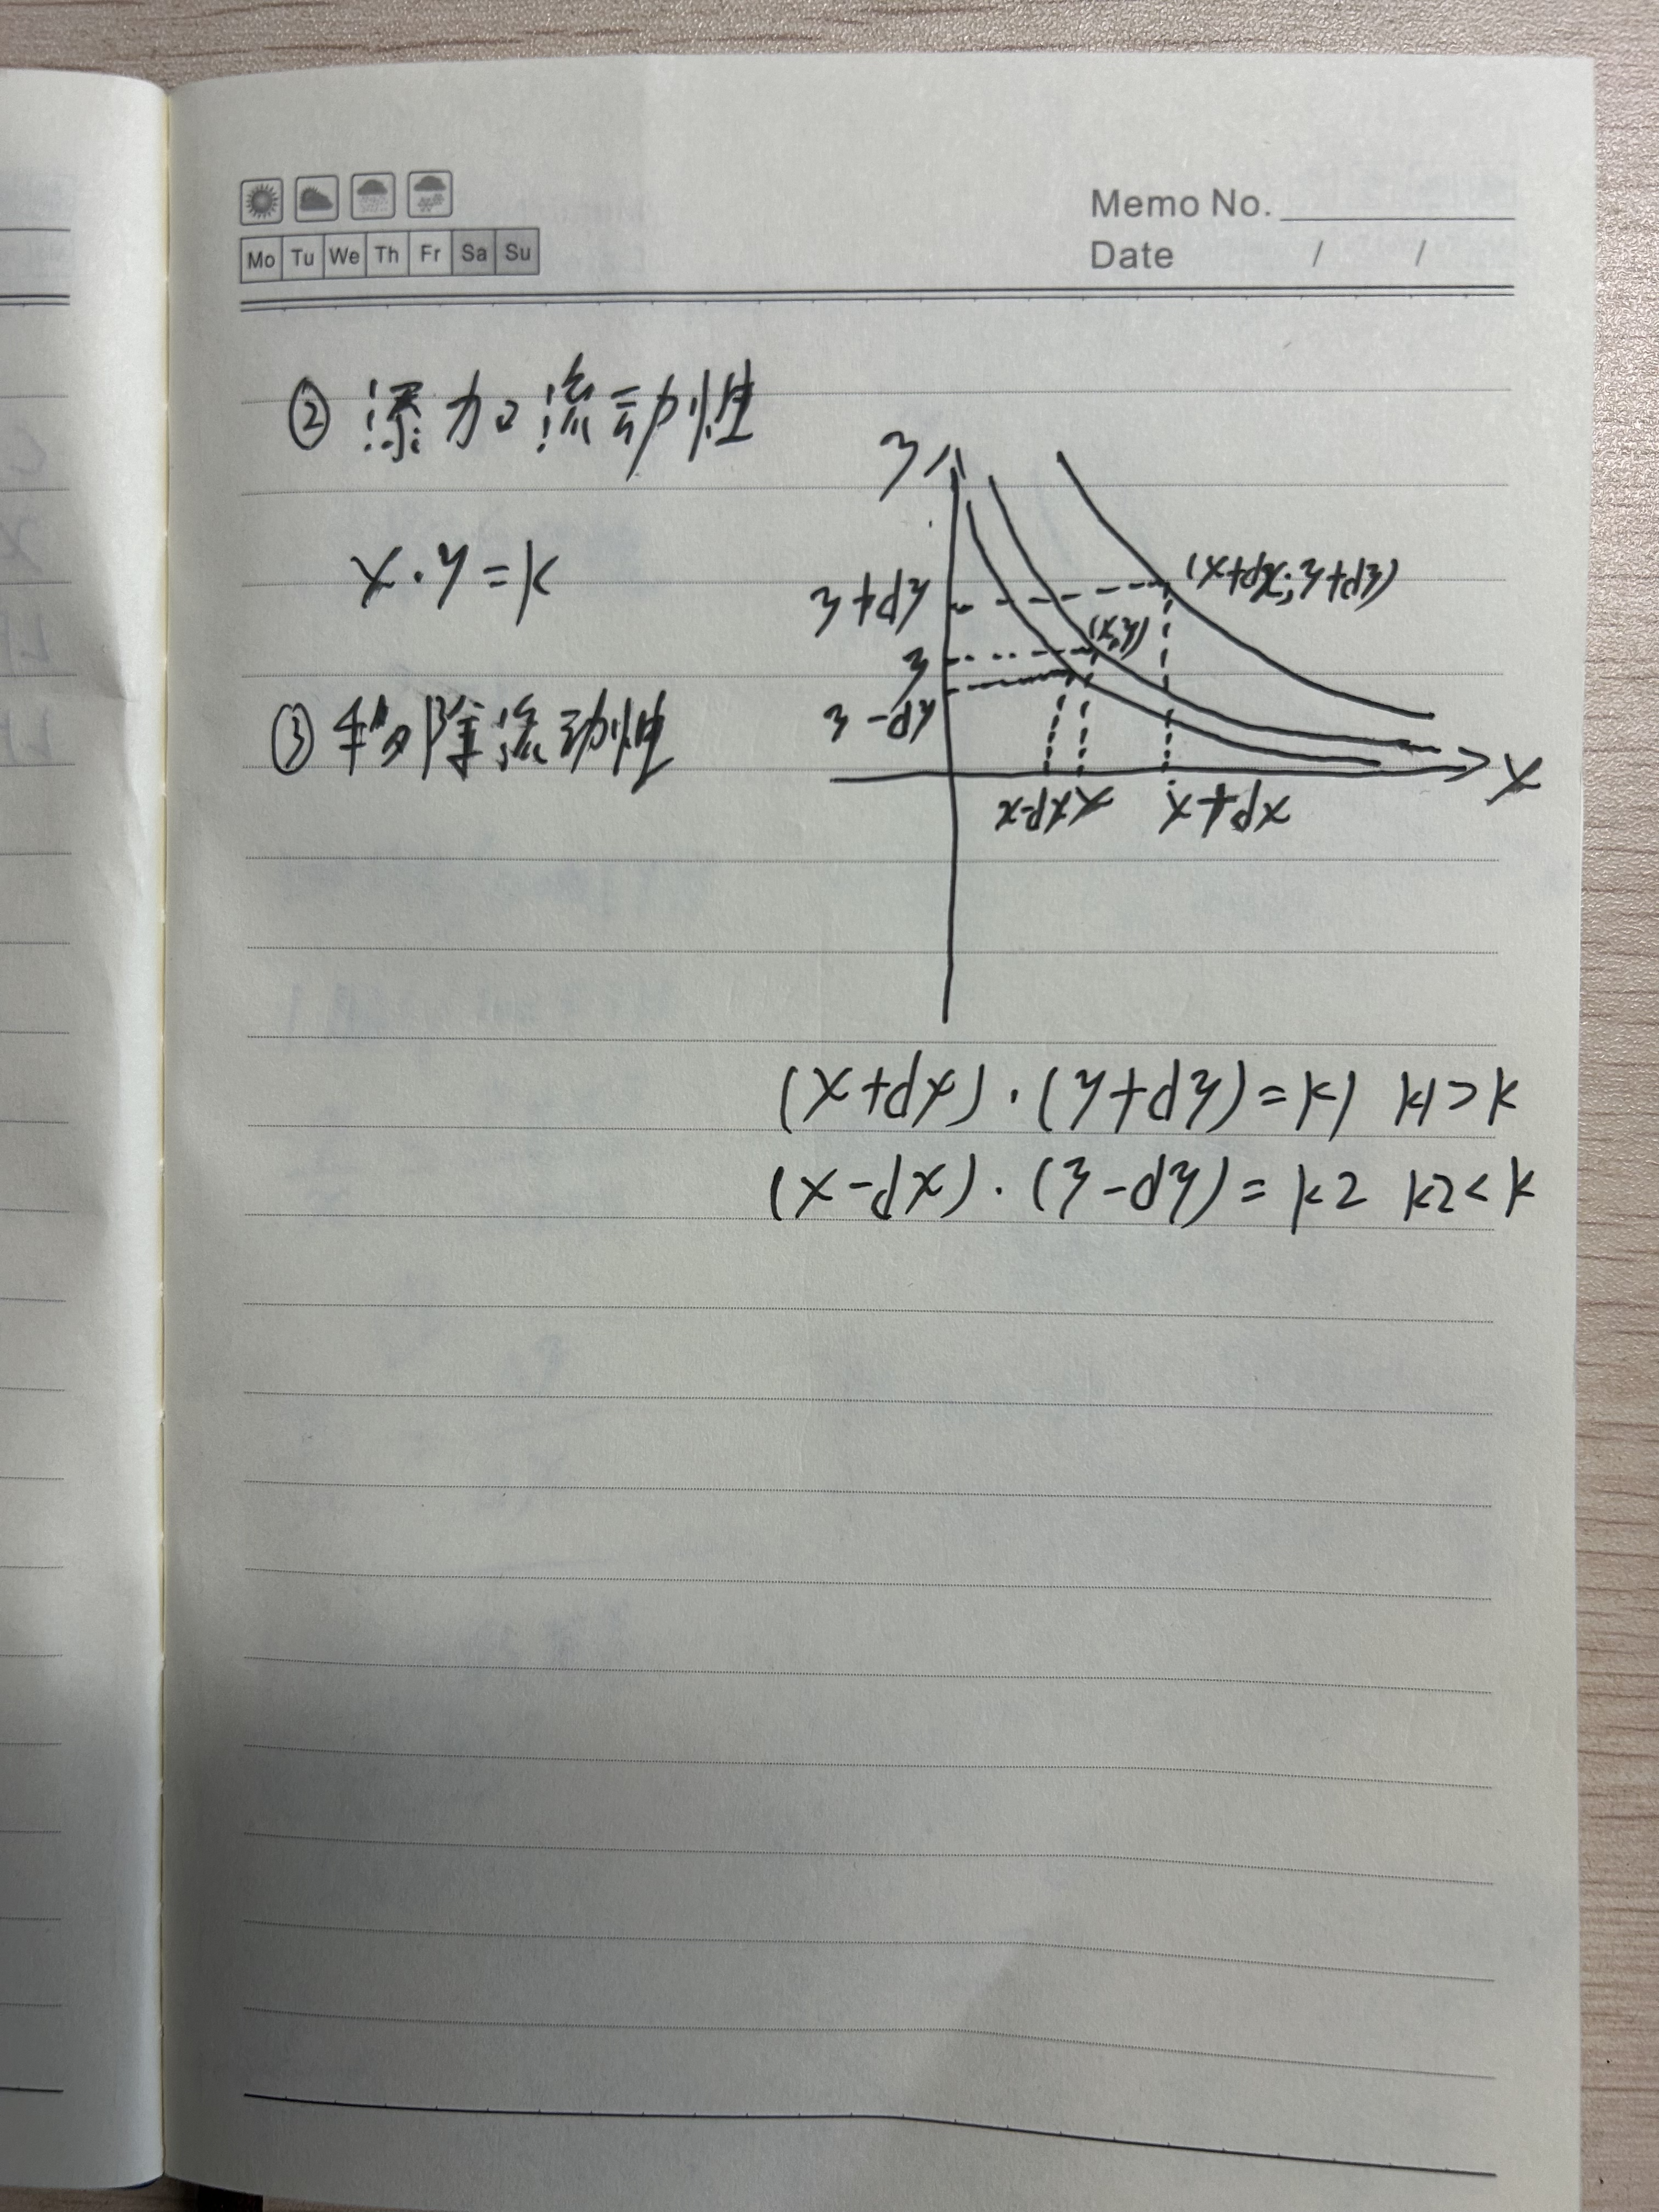 Memo No.
Mo Tu We Th Fr Sa Su
Date / /
② 添加流动性
x·y=k
③ 移除流动性
y
y+dy
y
y-dy
(x+dx, y+dy)
(x,y)
x-dx x x+dx
x
(x+dx)·(y+dy)=k1 k1>k
(x-dx)·(y-dy)=k2 k2<k